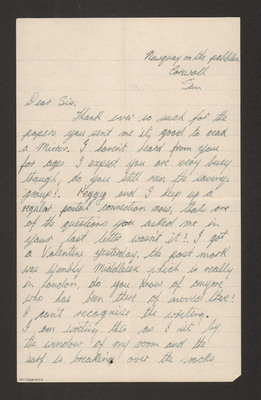 Newquay on the pebbles
Cornwall
Sun
Dear Sis.
Thank ever so much for the
papers you sent me it's good to read
a Mirror. I haven't heard from you
for ages I expect you are very busy
though, do you still run the savings
group?. Peggy and I keep up a
regular postal connection now, thats one
of the questions you asked me in
your last letter wasn't it?. I got
a Valentine yesterday, the post mark
was Wembly Middlesex which is really
in London. do you know of anyone
who has been there of moved there?
I can't recognise the writing.
I am writing this as I sit by
the window of my room and the
surf is breaking over the rocks